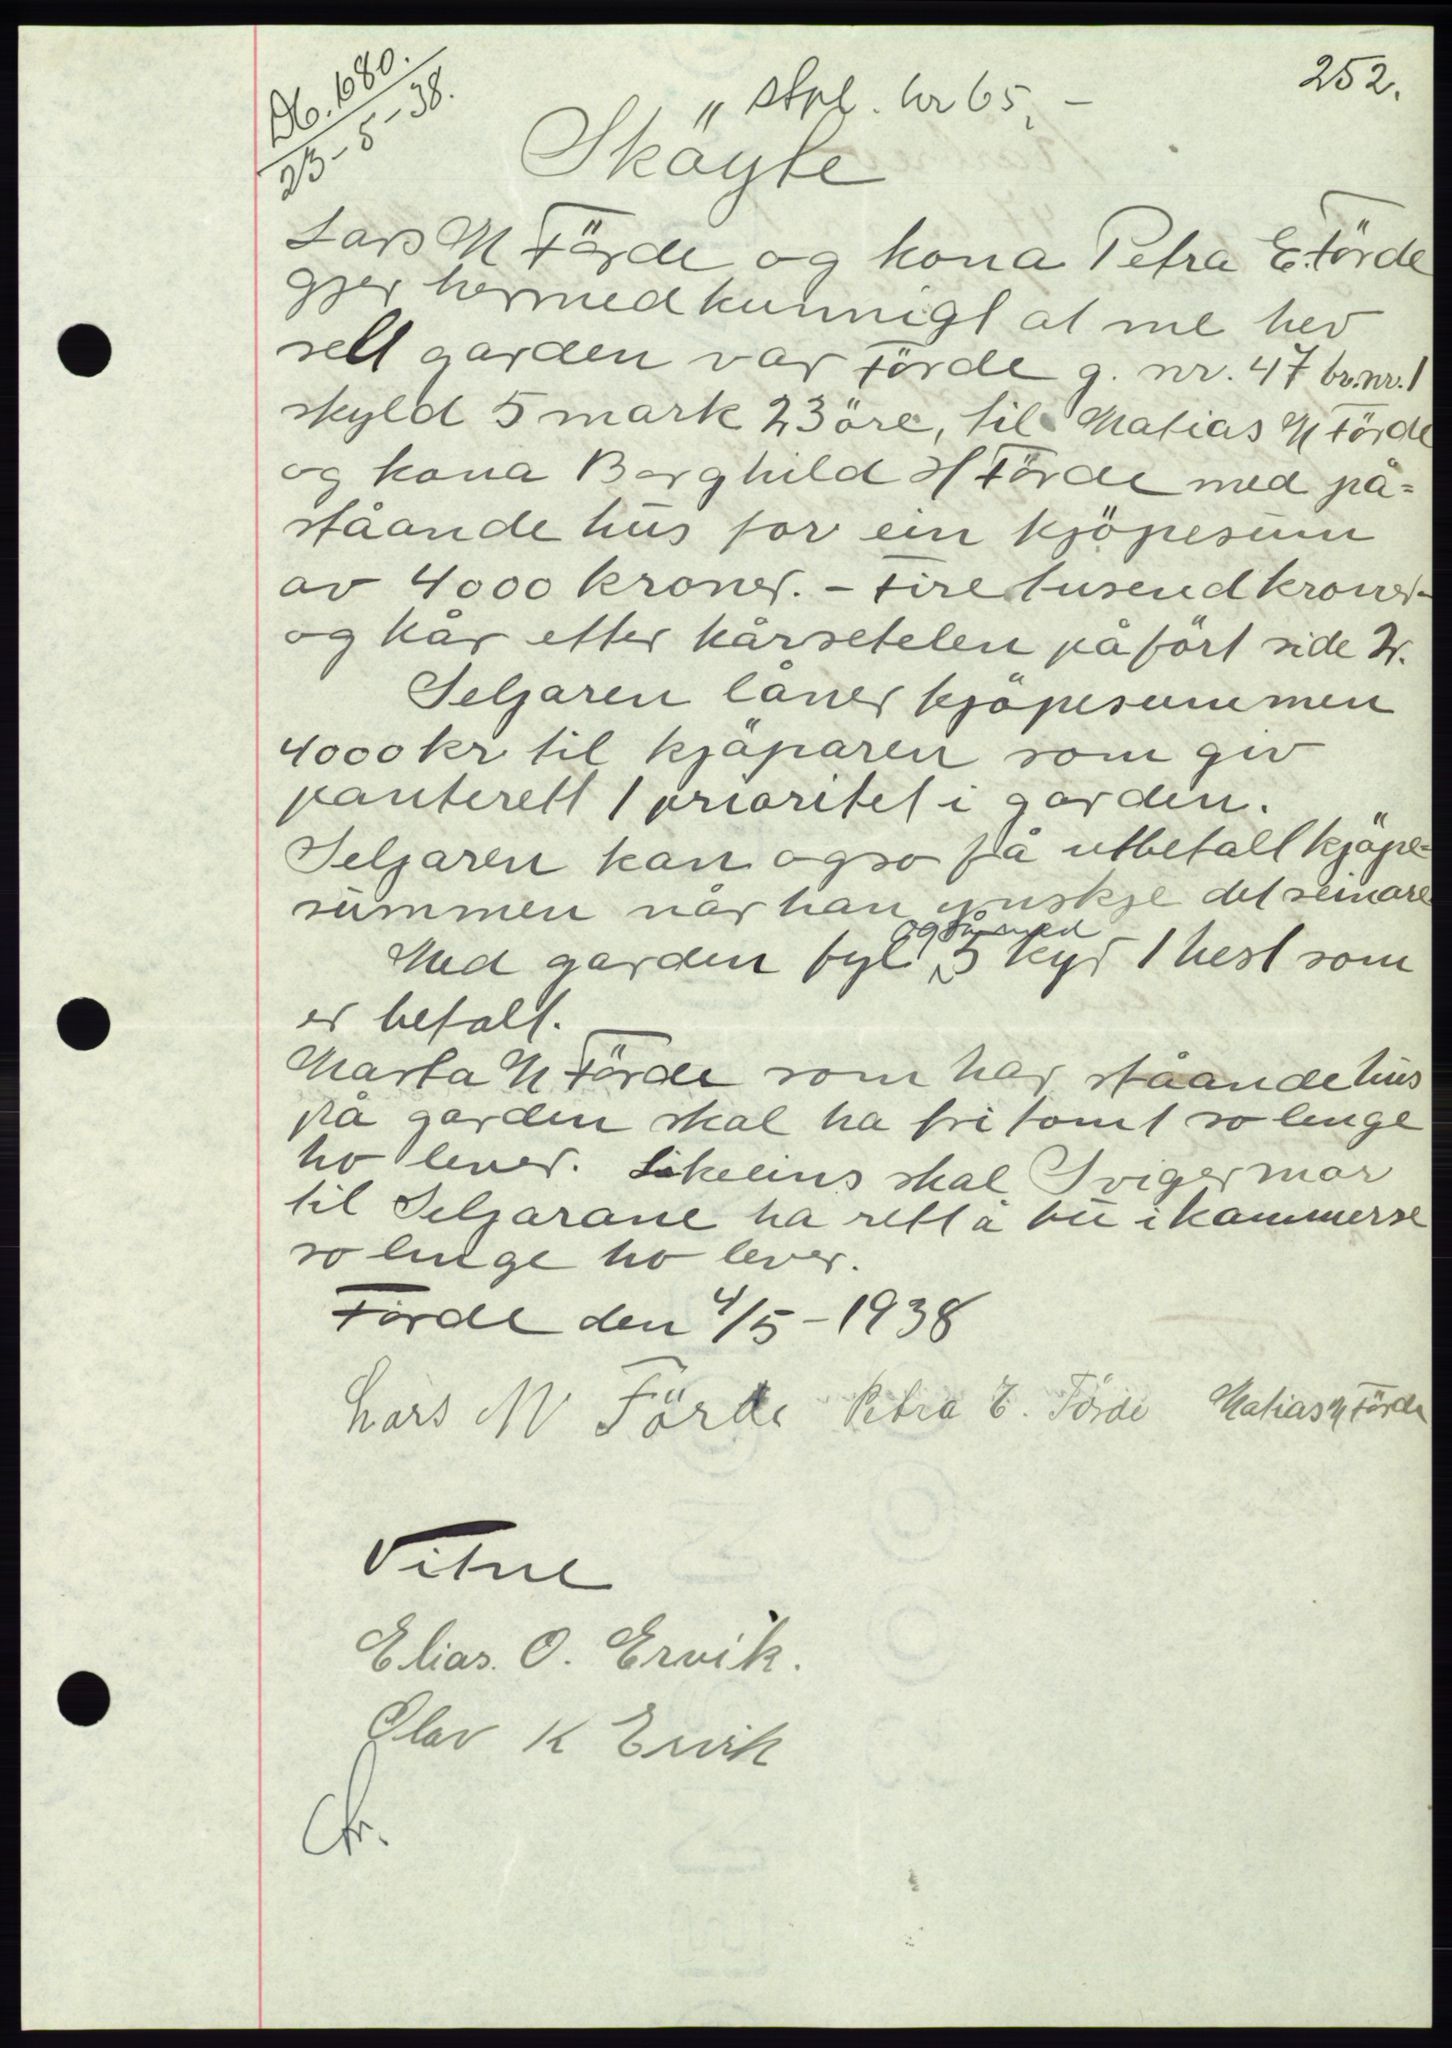 252.
Db. 680.
23-5-38.
Stpl. kr 65,-
Sköyte
Lars N Förde og kona Petra E. Förde
gjer hermed kunnigt at me hev
sellt garden vår Förde g. nr. 47 br.nr. 1
skyld 5 mark 23 öre, til Matias N Förde
og kona Borghild H Förde med på=
ståande hus for ein kjöpesum
av 4000 kroner. - Fire tusend kroner-
og kår etter kårsetelen påfört side 2.
Seljaren låner kjöpesummen
4000 kr til kjöparen som giv
panterett 1 prioritet i garden.
Seljaren kan ogso få utbetalt kjöpe=
summen når han ynskje det seinare
Med garden fyl også med 5 kyr 1 hest som
er betalt.
Marta N Förde som har ståande hus
på garden skal ha fri tomt so lenge
ho lever. Likeeins skal Svigermor
til Seljarane ha rett å bu i kammerse
so lenge ho lever.
Förde den 4/5-1938
Lars N Förde Petra E. Förde Matias N Förde
Vitne
Elias. O. Ervik.
Olav K Ervik